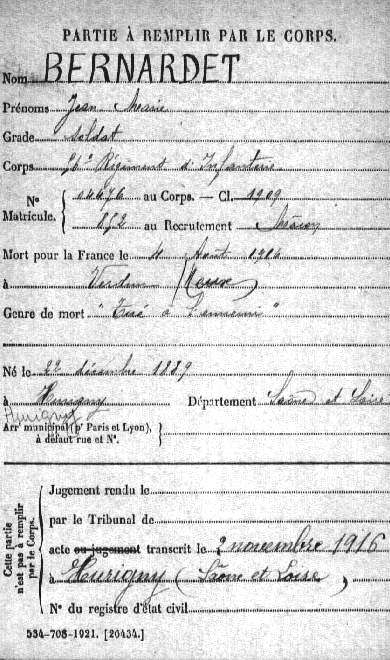 PARTIE À REMPLIR PAR LE CORPS.
Nom BERNARDET
Prénoms Jean Marie
Grade soldat
Corps Régiment d'Infanterie
Nº au Corps. — Cl. 1909
Matricule. au Recrutement Mâcon
Mort pour la France le Août
à Verdun (Meuse)
Genre de mort "Tué à l'ennemi"
Né le 22 décembre 1889
à Hurigny Département Saône et Loire
Hurigny
Arrᵗ municipal (pʳ Paris et Lyon),
à défaut rue et Nº.
Cette partie
n'est pas à remplir
par le Corps.
Jugement rendu le
par le Tribunal de
acte ou jugement transcrit le 2 novembre 1916
à Hurigny (Saône et Loire)
Nº du registre d'état civil
534-708-1921. [26434.]